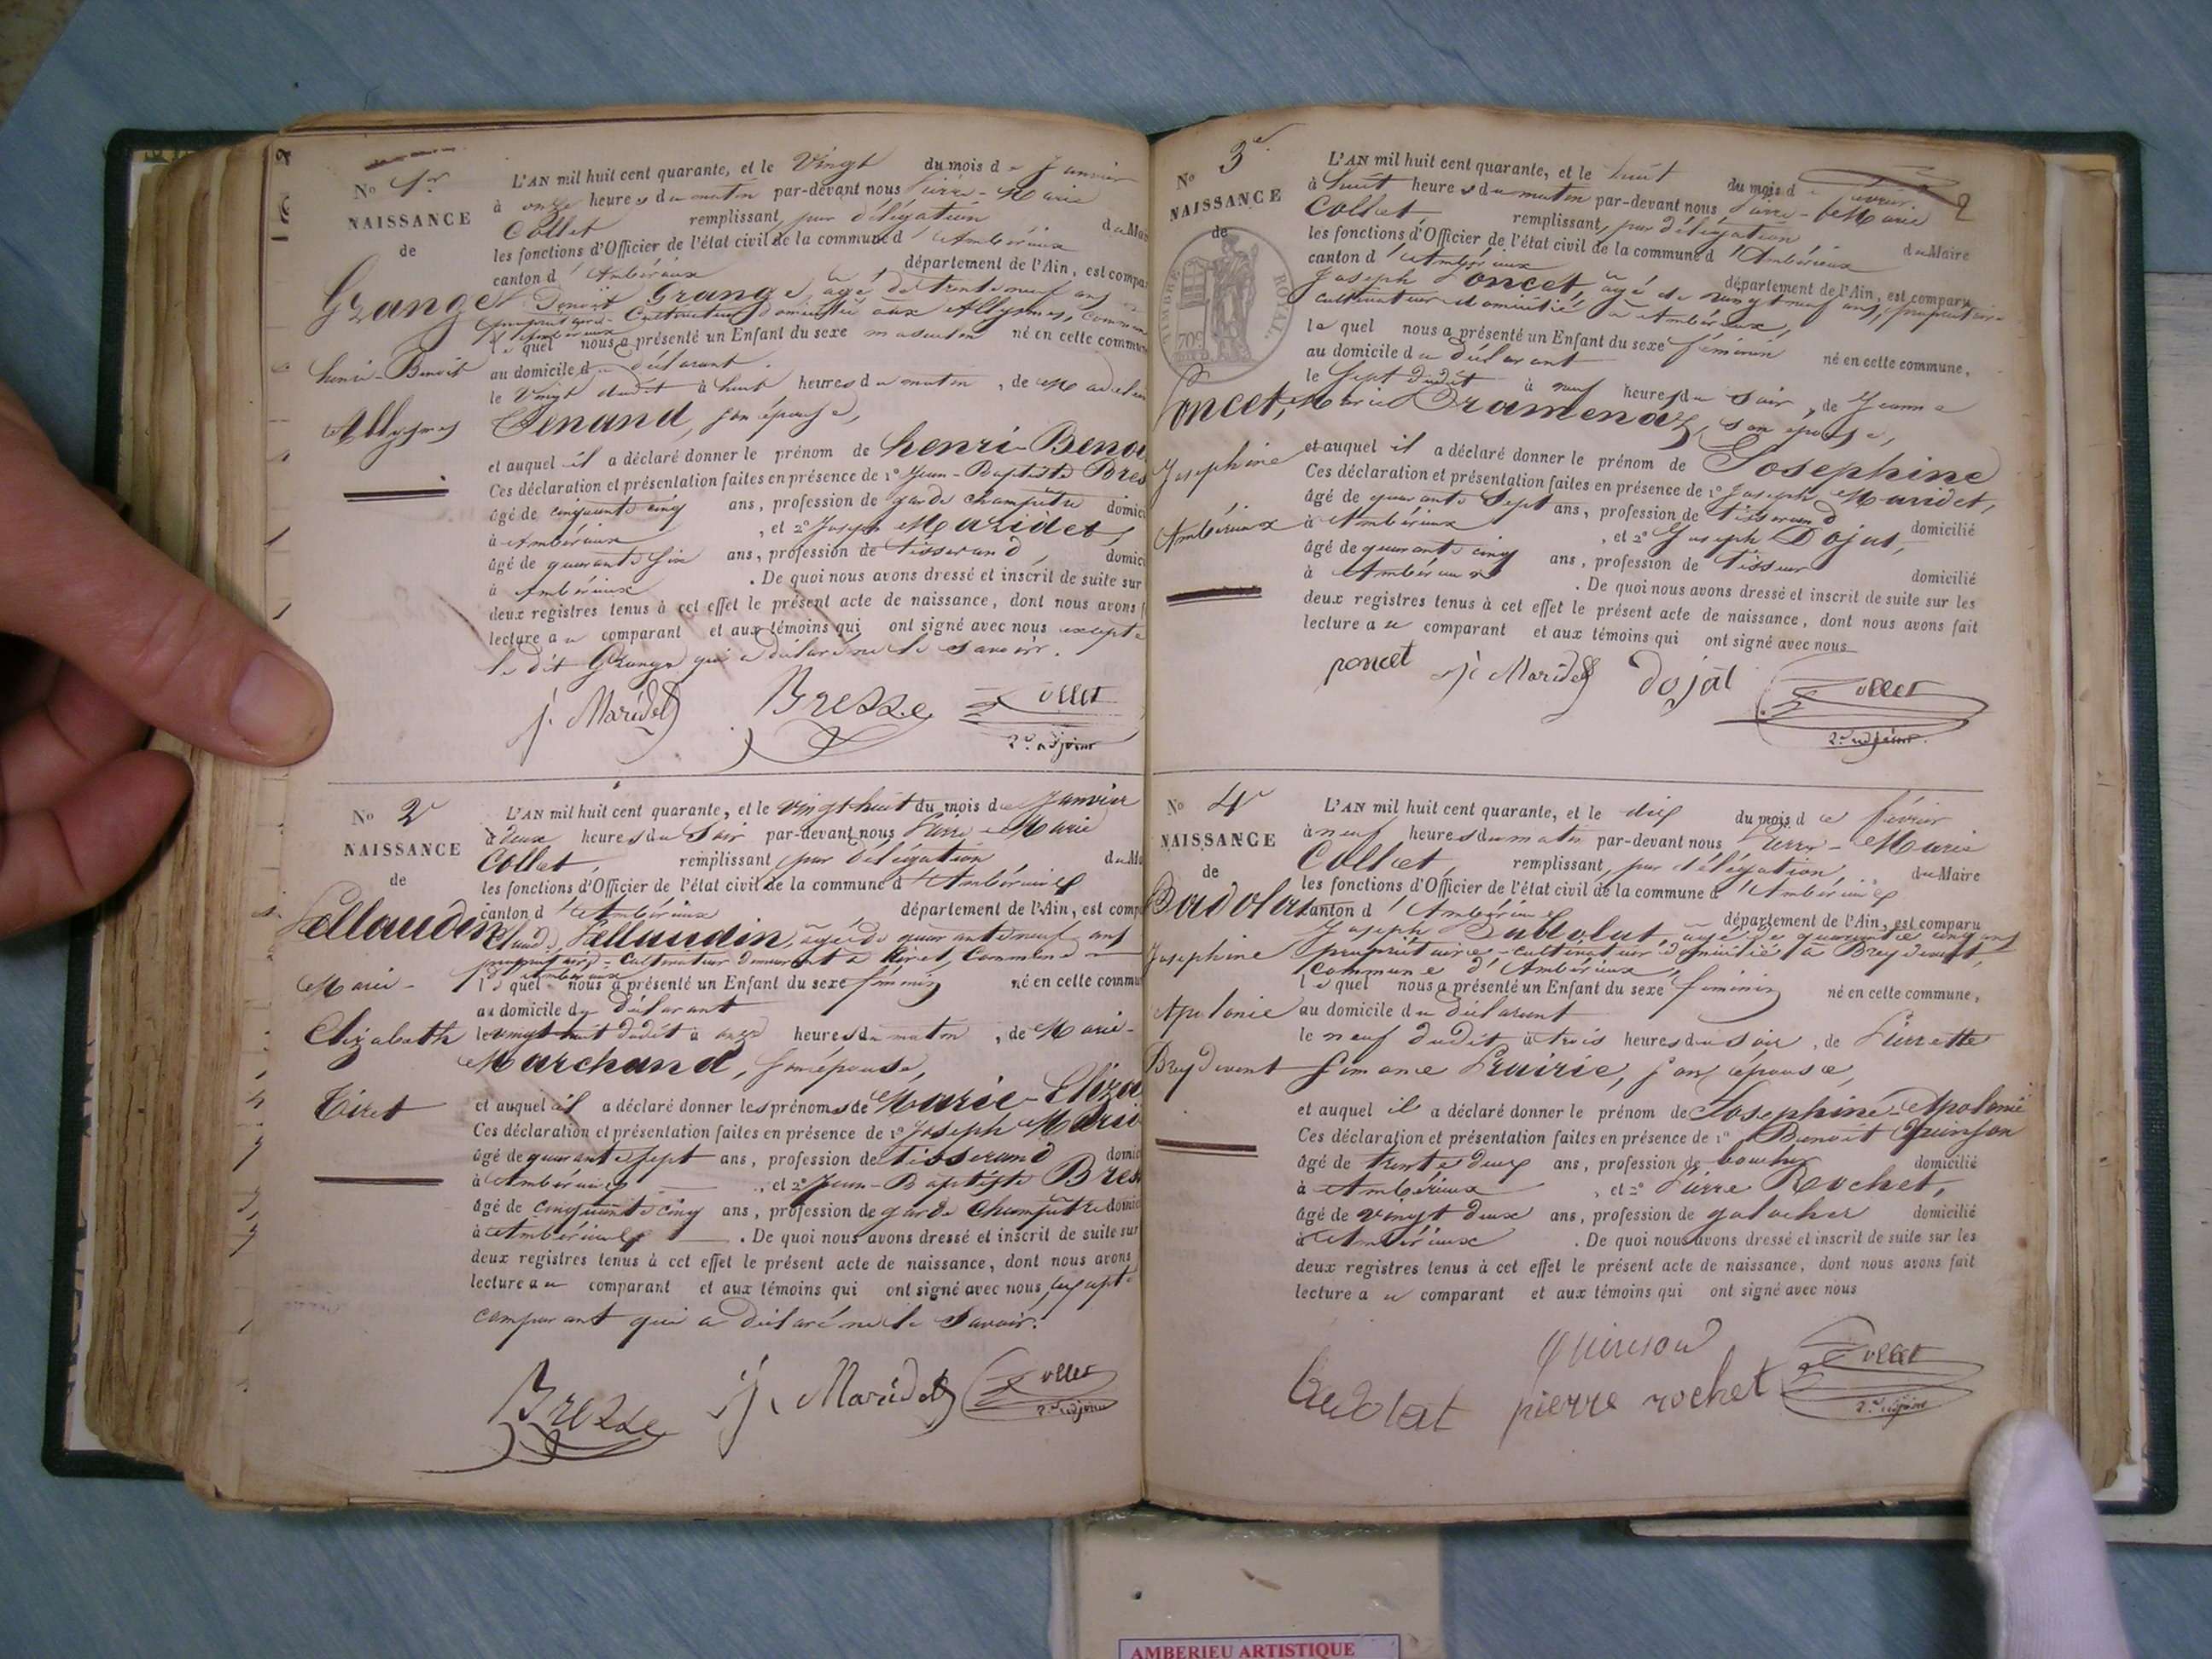 No 1er
NAISSANCE
de
Grange
henri-Benoit
Allymes
L'AN mil huit cent quarante, et le Vingt du mois de Janvier
à onze heures du matin par-devant nous Pierre-Marie
Collet remplissant, par délégation du Mai
les fonctions d'Officier de l'état civil de la commune d'Ambérieux
canton d'Ambérieux département de l'Ain, est compa
Benoit Grange, agé de trente neuf ans
propriétaire-Cultivateur, domicilié aux Allymes, commune
d'Ambérieux
lequel nous a présenté un Enfant du sexe masculin né en cette commu
au domicile du déclarant.
le Vingt dudit à huit heures du matin, de
Tenand, son épouse,
et auquel il a déclaré donner le prénom de henri-Benoi
Ces déclaration et présentation faites en présence de 1º Jean-Baptiste Bres
âgé de cinquante cinq ans, profession de garde champêtre domici
à Ambérieux, et 2º Joseph Maridet,
âgé de quarante six ans, profession de tisserand, domici
à Ambérieux. De quoi nous avons dressé et inscrit de suite sur
deux registres tenus à cet effet le présent acte de naissance, dont nous avons f
lecture au comparant et aux témoins qui ont signé avec nous excepté
le dit Grange qui a déclaré ne le savoir.
j. Maridet Bresse Collet
2e adjoint
No 2e
NAISSANCE
de
Pellaudin
Marie-
Elizabeth
Tiret
L'AN mil huit cent quarante, et le vingt-huit du mois de Janvier
à deux heures du Soir par-devant nous Pierre-Marie
Collet, remplissant, par délégation du Ma
les fonctions d'Officier de l'état civil de la commune d'Ambérieux
canton d'Ambérieux département de l'Ain, est comp
Claude Pellaudin, agé de quarante neuf ans
propriétaire-Cultivateur demeurant à Tiret, Commune
d'Ambérieux
lequel nous a présenté un Enfant du sexe féminin né en cette commu
au domicile du déclarant
le vingt-huit dudit à onze heures du matin, de Marie-
Marchand, son épouse,
et auquel il a déclaré donner les prénoms de Marie-Eliza
Ces déclaration et présentation faites en présence de 1º Joseph Mari
âgé de quarante sept ans, profession de tisserand domic
à Ambérieux, et 2º Jean-Baptiste Bres
âgé de cinquante cinq ans, profession de garde champêtre domic
à Ambérieux. De quoi nous avons dressé et inscrit de suite sur
deux registres tenus à cet effet le présent acte de naissance, dont nous avons
lecture au comparant et aux témoins qui ont signé avec nous, excepté
comparant qui a déclaré ne le Savoir.
Bresse j. Maridet Collet
2e adjoint
No 3e
NAISSANCE
de
TIMBRE ROYAL.
70c
Poncet,
Josephine
Ambérieux
2
L'AN mil huit cent quarante, et le huit du mois de février
à huit heures du matin par-devant nous Pierre-Marie
Collet, remplissant, par délégation du Maire
les fonctions d'Officier de l'état civil de la commune d'Ambérieux
canton d'Ambérieux département de l'Ain, est comparu
Joseph Poncet, agé de vingt neuf ans, propriétaire-
cultivateur domicilié à Ambérieux,
lequel nous a présenté un Enfant du sexe féminin né en cette commune,
au domicile du déclarant
le Sept dudit à neuf heures du Soir, de Jeanne
Marie Tramenaz, son épouse,
et auquel il a déclaré donner le prénom de Josephine
Ces déclaration et présentation faites en présence de 1º Joseph Maridet,
âgé de quarante Sept ans, profession de tisserand domicilié
à Ambérieux, et 2º Joseph Dojat,
âgé de quarante cinq ans, profession de tisseur domicilié
à Ambérieux. De quoi nous avons dressé et inscrit de suite sur les
deux registres tenus à cet effet le présent acte de naissance, dont nous avons fait
lecture au comparant et aux témoins qui ont signé avec nous
poncet j. Maridet dojat Collet
2e adjoint
No 4e
NAISSANCE
de
Badolat
Josephine
Apolonie
Breydevent
L'AN mil huit cent quarante, et le dix du mois de février
à neuf heures du matin par-devant nous Pierre-Marie
Collet, remplissant, par délégation, du Maire
les fonctions d'Officier de l'état civil de la commune d'Ambérieux
canton d'Ambérieux département de l'Ain, est comparu
Joseph Badolat agé de quarante cinq ans
propriétaire-cultivateur domicilié à Breydevent,
commune d'Ambérieux,
lequel nous a présenté un Enfant du sexe féminin né en cette commune,
au domicile du déclarant
le neuf dudit à trois heures du soir, de Pierrette
Simone Prairie, son épouse,
et auquel il a déclaré donner le prénom de Josephine-Apolonie
Ces déclaration et présentation faites en présence de 1º Benoit Quinson
âgé de trente deux ans, profession de boucher domicilié
à Ambérieux, et 2º Pierre Rochet,
âgé de vingt deux ans, profession de galocher domicilié
à Ambérieux. De quoi nous avons dressé et inscrit de suite sur les
deux registres tenus à cet effet le présent acte de naissance, dont nous avons fait
lecture au comparant et aux témoins qui ont signé avec nous
quinson
Badolat pierre rochet Collet
2e adjoint
AMBERIEU ARTISTIQUE